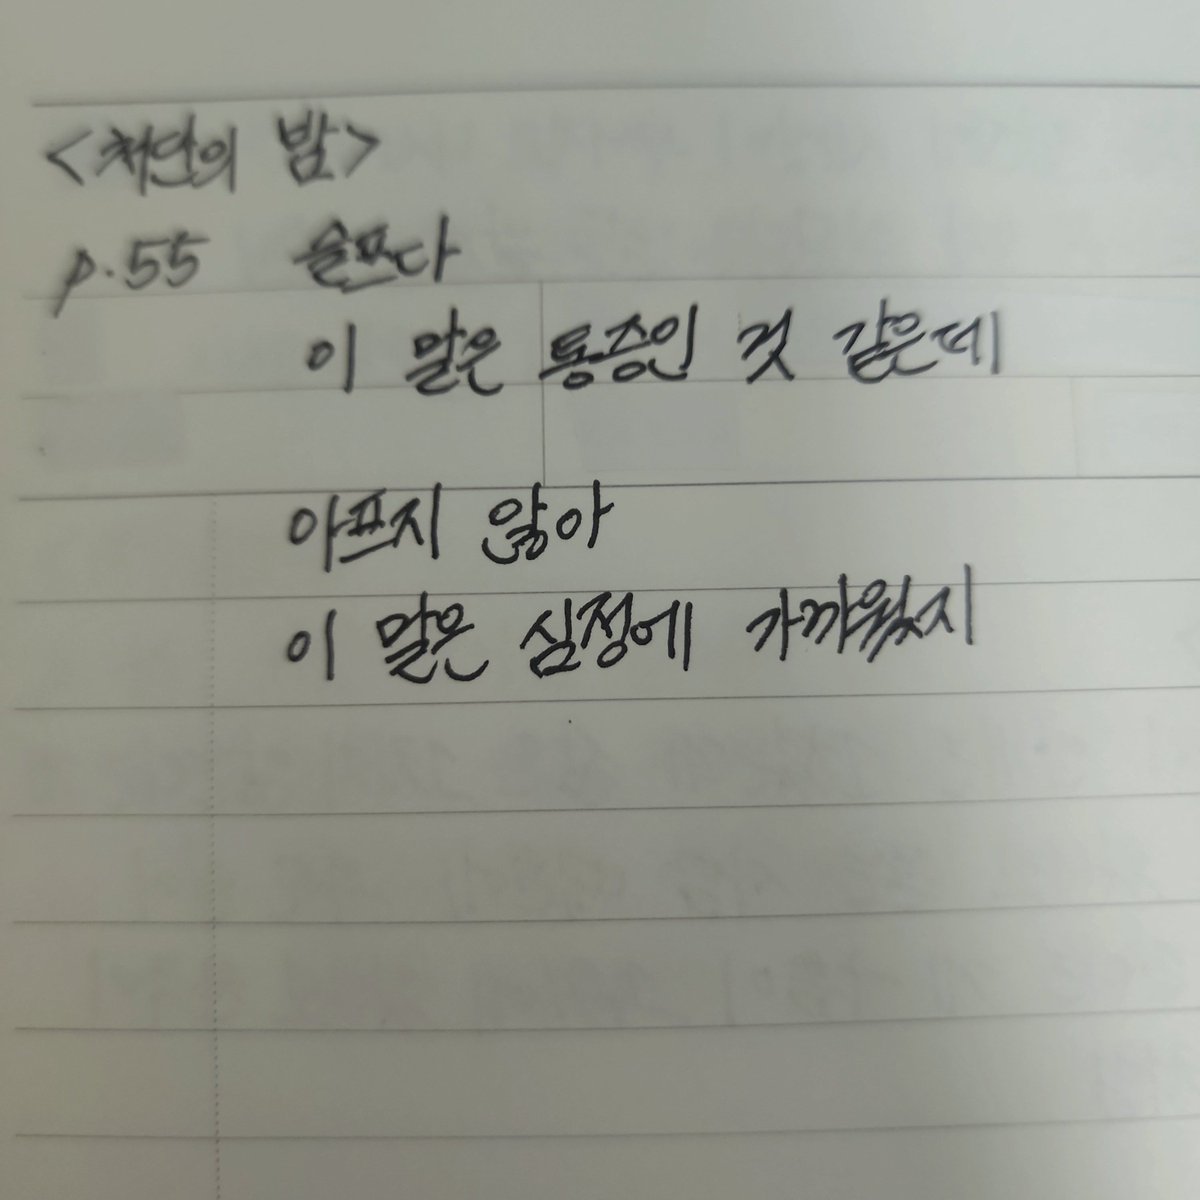 <천안의 밤>
p.55 슬프다
이 말은 통증인 것 같은데
아프지 않아
이 말은 심정에 가까웠지